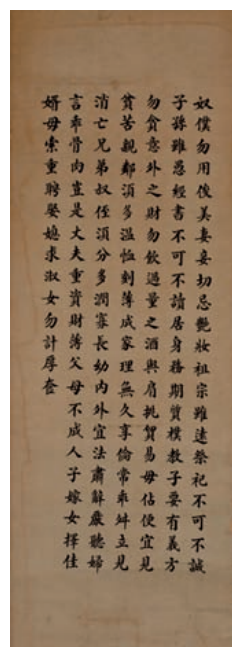 奴僕勿用俊美妻妾切忌艷妝祖宗雖遠祭祀不可不誠
子孫雖愚經書不可不讀居身務期質樸教子要有義方
勿貪意外之財勿飲過量之酒與肩挑貿易毋佔便宜見
貧苦親鄰須多溫恤刻薄成家理無久享倫常乖舛立見
消亡兄弟叔侄須分多潤寡長幼內外宜法肅辭嚴聽婦
言乖骨肉豈是丈夫重資財薄父母不成人子嫁女擇佳
婿毋索重聘娶媳求淑女勿計厚奩